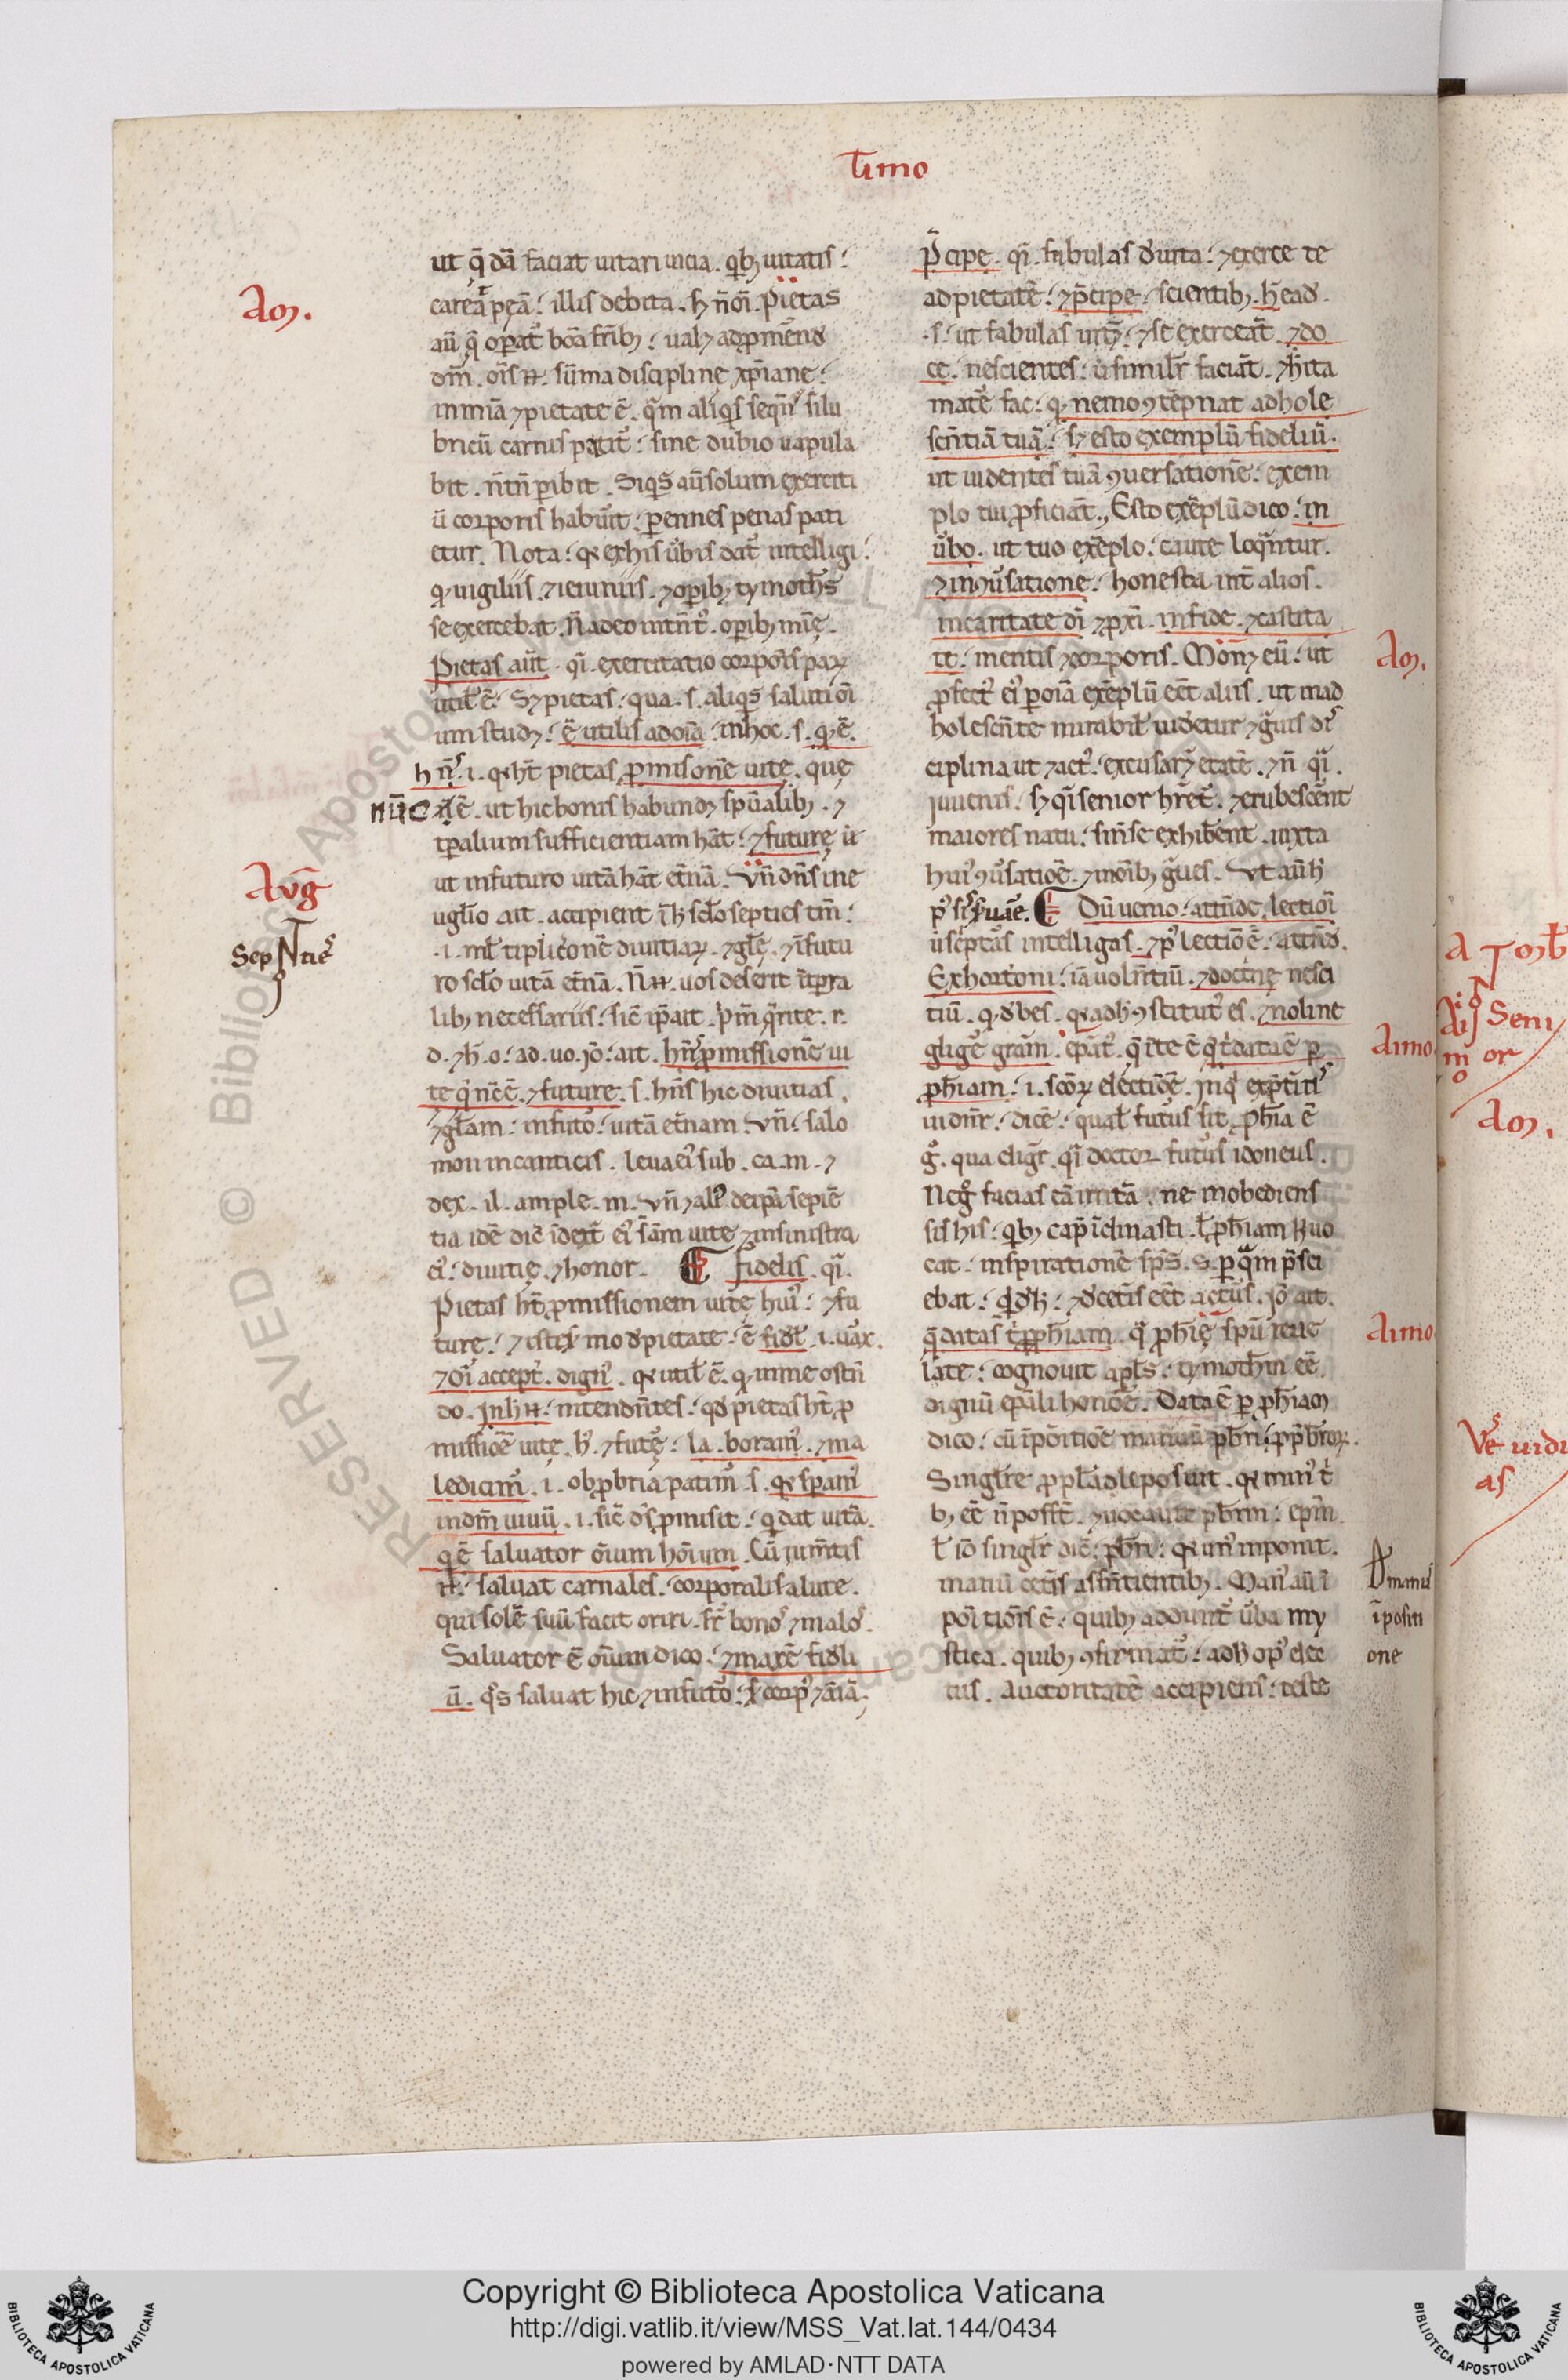 Timo
ut q̄ dā faciat uitari uicia. qib; uitatis:
careā pęā: illis debita. sꝫ n̄ oī. Pietas
Am.
aū q̄ oꝑat᷑ bōa frib;: ualꝫ ad ꝓmēnd
dm̄. oīs n̄. sūma disciplinę xp̄iane:
in mīa ⁊ pietate ē. q̄m aliq̄s seqn̄s si lu
bricū carnis patit᷑: sine dubio uapula
bit. n̄ tn̄ ꝑibit. Siqs aū solum exerciti
ū corporis habuīt: ꝑennes penas pati
etur. Nota: qꝛ ex his ūbis dat᷑ intelligi:
qꝫ uigiliis. ⁊ ieiuniis. ⁊ oꝑib; tymoth̄s
se exercebat. N̄ adeo intn̄t᷑. oꝑib; mīę.
Pietas aūt. qī. exercitatio corporīs parꝫ
util̄ ē. Sꝫ pietas: qua. s. aliq̄s saluti oī
um studꝫ: ē utilis ad oīa: in hoc. s. qꝫ ē.
hn̄s. i. qꝛ ht̄ pietas ꝓmisionē uitę. quę
nūc ē. ut hic bonis habundꝫ sp̄ualib;. ⁊
tꝑalium sufficientiam hāt: ⁊ futurę ū
ut in futuro uitā hāt et̄nā. Vn̄ dn̄s in e
Avḡ
uglīo ait. accipient ī h̄ sc̄lo septies tm̄:
.i. ml̄tiplicōnē diuitiarꝫ. ⁊ gl̄ę. ⁊ ī futu
Sepntiēs
ro sc̄lo uitā et̄nā. N̄ n̄. uos deserit ī tꝑa
lib; necessariis: sic̄ ip̄ ait. p̄m q̄rite. r.
d. ⁊ h̄. o. ad. uo. jō: ait. hn̄s ꝓmissionē ui
te q̄ nc̄ ē. ⁊ future. s. hn̄s hic diuitias.
⁊ gl̄am: in futō: uitā et̄nam. Vn̄: salo
mon in canticis. leua ei᷑ sub. ca. m. ⁊
dex. il. ample. m. Vn̄ ⁊ alī de ipā sepiē
tia idē dic̄ in dext᷑ ei᷑ s̄am uite ⁊ in sinistra
ei᷑: diuitię. ⁊ honor. ¶ Fidelis. qī.
Pietas ht̄ ꝓmissionem uitę hui᷑: ⁊ fu
ture: ⁊ iste smo d̄ pietate: ē fidel̄. i. uāx.
⁊ oī accept᷑. dign᷑. qꝛ util̄ ē. qꝫ in me ostn̄
do. Jn h̄ n̄: intendn̄tes: qd pietas ht̄ ꝓ
missiōē uitę. h᷑. ⁊ futę᷑: la. boram᷑. ⁊ ma
ledicim᷑. i. obꝓbria patim᷑. s. qꝛ spam᷑
in dm̄ uiuū. i. sic̄ ds̄ ꝓmisit: qi dat uitā.
qi ē saluator oīum hoīum. Cū iumn̄tis
n̄: saluat carnales. corporali salute.
qui solē suū facit oriri. sr̄ bonos ⁊ malos.
Saluator ē oīum dico: ⁊ maxē fideli
ū. qos saluat hic ⁊ in futō: s; corp᷑ ⁊ aīā:
p̄cipe. qī. fabulas d̄uita: ⁊ exerce te
ad pietatē: ⁊ p̄cipe: scientib;. h̄ ead.
.s. ut fabulas uitꝫ: ⁊ se exerceāt. ⁊ do
ce. nescientes: ū similr̄ faciāt. ⁊ h̄ ita
matē fac: qꝫ nemo ꝯtēpnat adhole
scn̄tiā tuā: sꝫ esto exemplū fideliū.
ut uidentes tuā ꝯuersationē: exem
plo tui ꝓficiāt., Esto exēplū dico: in
ūbo. ut tuo exēplo: caute loqn̄tur.
⁊ in ꝯūsatione. honesta int̄ alios.
in caritate dī ⁊ ꝓxī. in fide. ⁊ castita
te: mentis ⁊ corporis. Monꝫ eū: ut
Am.
ꝓfect᷑ ei᷑ ꝑ oīā exēplū eēt aliis. ut in ad
holescn̄te mirabil̄ uidetur ⁊ ḡuis dis
ciplina ut ⁊ act᷑: excusarꝫ etatē. ⁊ n̄ qī.
iuuenis. sꝫ qī senior hr̄et᷑. ⁊ erubescēnt
maiores natu: sīn se exhibēnt. iuxta
hui᷑ ꝯūsatiōē. ⁊ morib; ḡues. Ut aū h᷑
p᷑ sis s̄uaē. ¶ Dū uenio: attn̄de. lectiōi
ū sc̄ptas intelligas. ⁊ p᷑ lectiōē. attēd.
Exhortōni: iā uoln̄tiū. ⁊ doctinę nesci
tiū. qꝫ d̄bes. qꝛ ad h᷑ ꝯstitut᷑ es. ⁊ noli ne
gligē grām. epāt᷑. q̄ in te ē q̄ t̄ data ē ꝑ
Aimo
ꝓph̄iam. i. sc̄orꝫ electiōē. Jn q̄ ex ptinis
uidnr̄: dicē. qual̄ futus sit. ꝓph̄ia ē
ḡ. qua eligr̄. qī doctor futus idoneus.
Neg̊ facias eā irritā. ne inobediens
sis his: qib; cap̄ īclinasti. l̄ ꝓph̄iam h̄ uo
cat. inspirationē sp̄s. s. ꝑ quam p̄sci
ebat: qi d h̄: ⁊ d̄ cet̄is eēt actus. jō ait.
q̄ data s̄ t̄ ꝑ ꝓph̄iam. q̄ ꝓph̄ię sp̄u reue
Aimo
late: cognouit apl̄s: tymoth̄m eē
dignū ep̄ali honōē. Data ē ꝑ ꝓph̄iam
dico: cū īpōitiōē manuū pb̄ri: ꝓ pb̄rorꝫ.
Singl̄re ꝓ pl̄ad le posuit. qꝛ min᷑ t̄
b; eē n̄ posst̄. ⁊ uocauit pb̄rm: ep̄m.
l̄ iō singlr̄ dic̄: pb̄ri: qꝛ un᷑ inponit.
manū cet̄is assn̄tientib;. Man᷑ aū ī
D̄ manus
poītiōīs ē: quib; addunt᷑ ūba my
īpositi
stica. quib; ꝯfirmat᷑: ad h᷑ op᷑ elec
one
tus. auctoritatē accipiens: teste
A
Tomb̄
Ais Seni
m or
o
Am.
Vē uidu
as
Copyright © Biblioteca Apostolica Vaticana
http://digi.vatlib.it/view/MSS_Vat.lat.144/0434
powered by AMLAD·NTT DATA
BIBLIOTECA APOSTOLICA VATICANA
BIBLIOTECA APOSTOLICA VATICANA